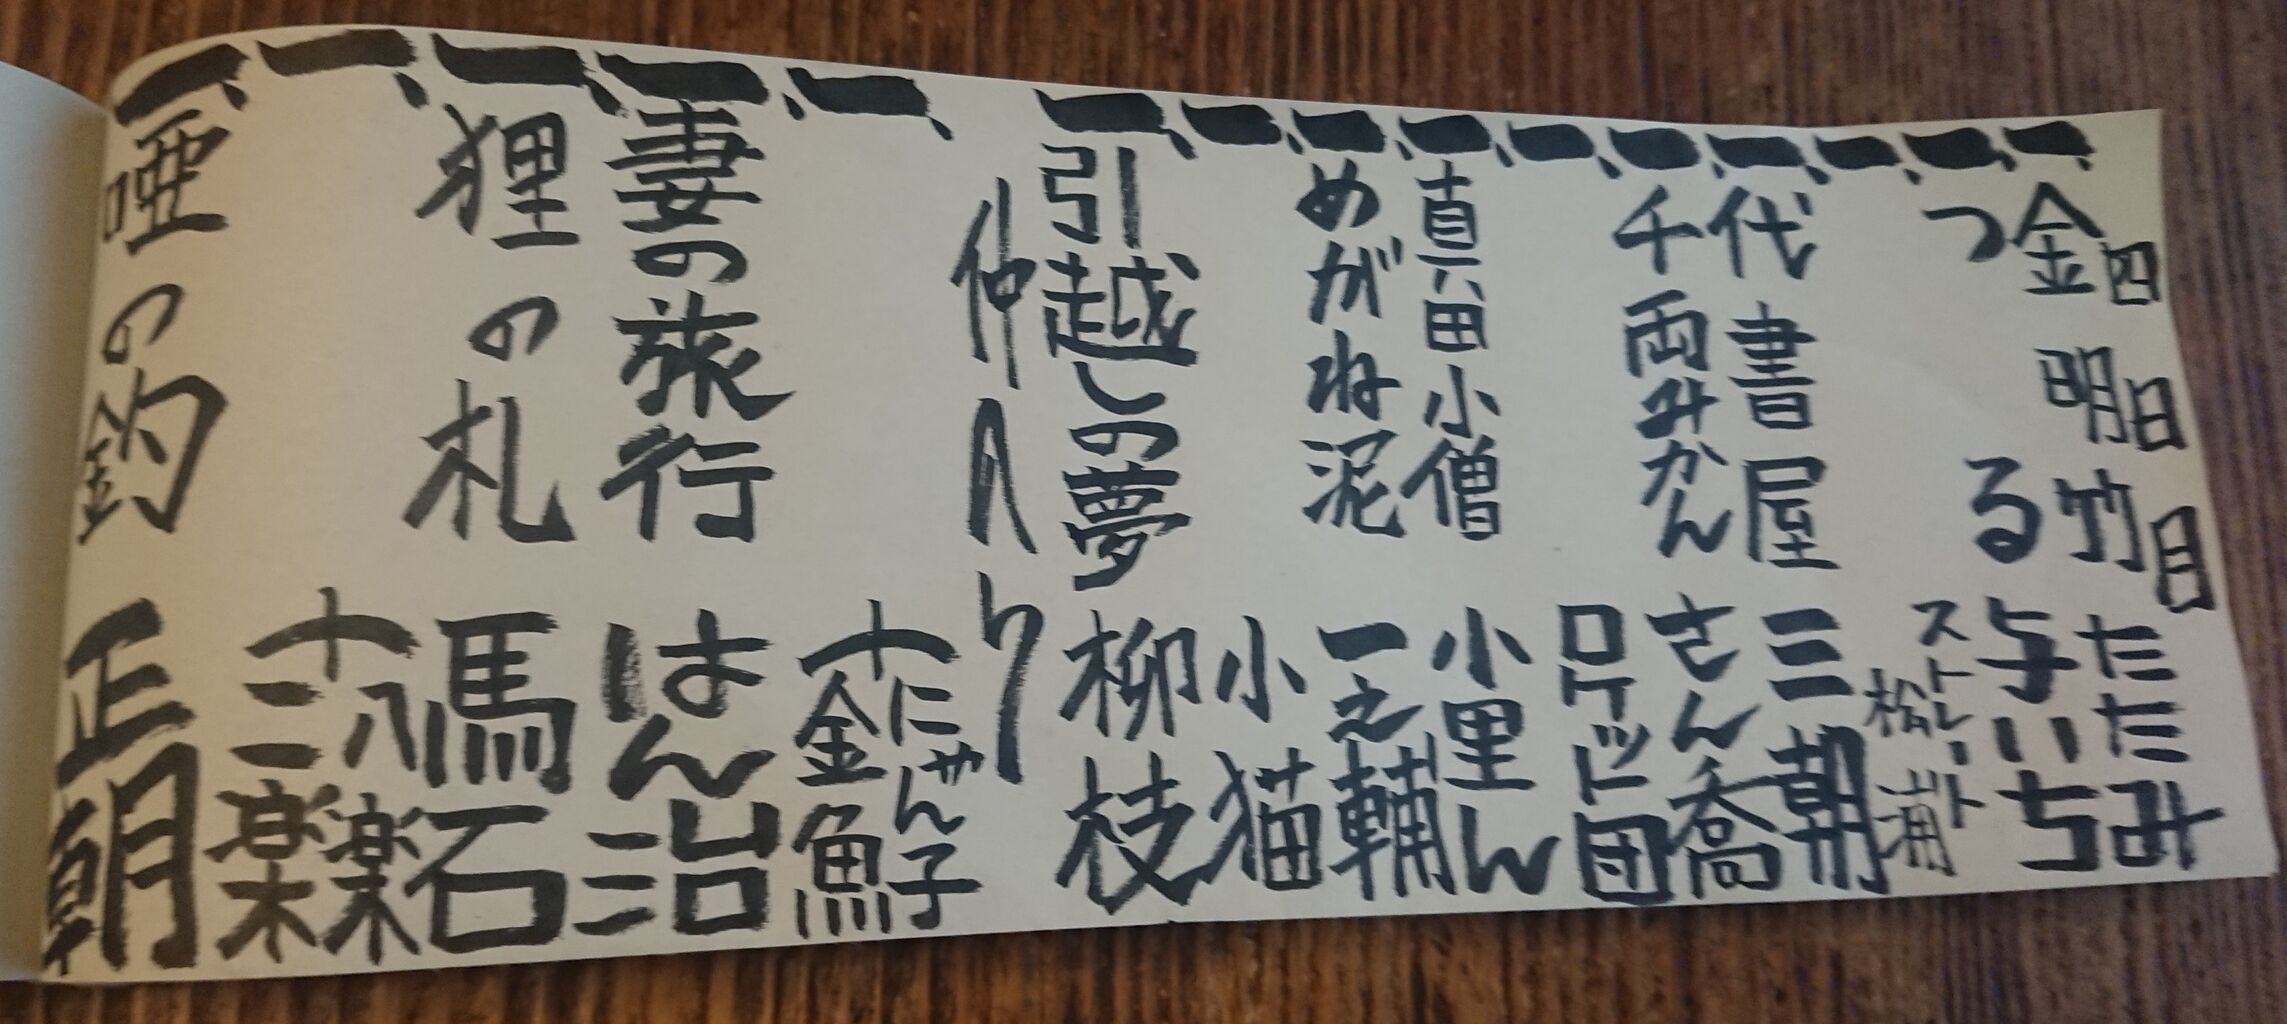 四日目
一、金明竹 たたみ
一、つる 与いち
一、ストレート松浦
一、代書屋 三朝
一、千両みかん さん喬
一、ロケット団
一、真田小僧 小里ん
一、めがね泥 一之輔
一、小猫
一、引越しの夢 柳枝
仲入り
一、にゃん子十金魚
一、妻の旅行 はん治
一、狸の札 馬石
一、二楽十八楽
一、唖の釣 正朝